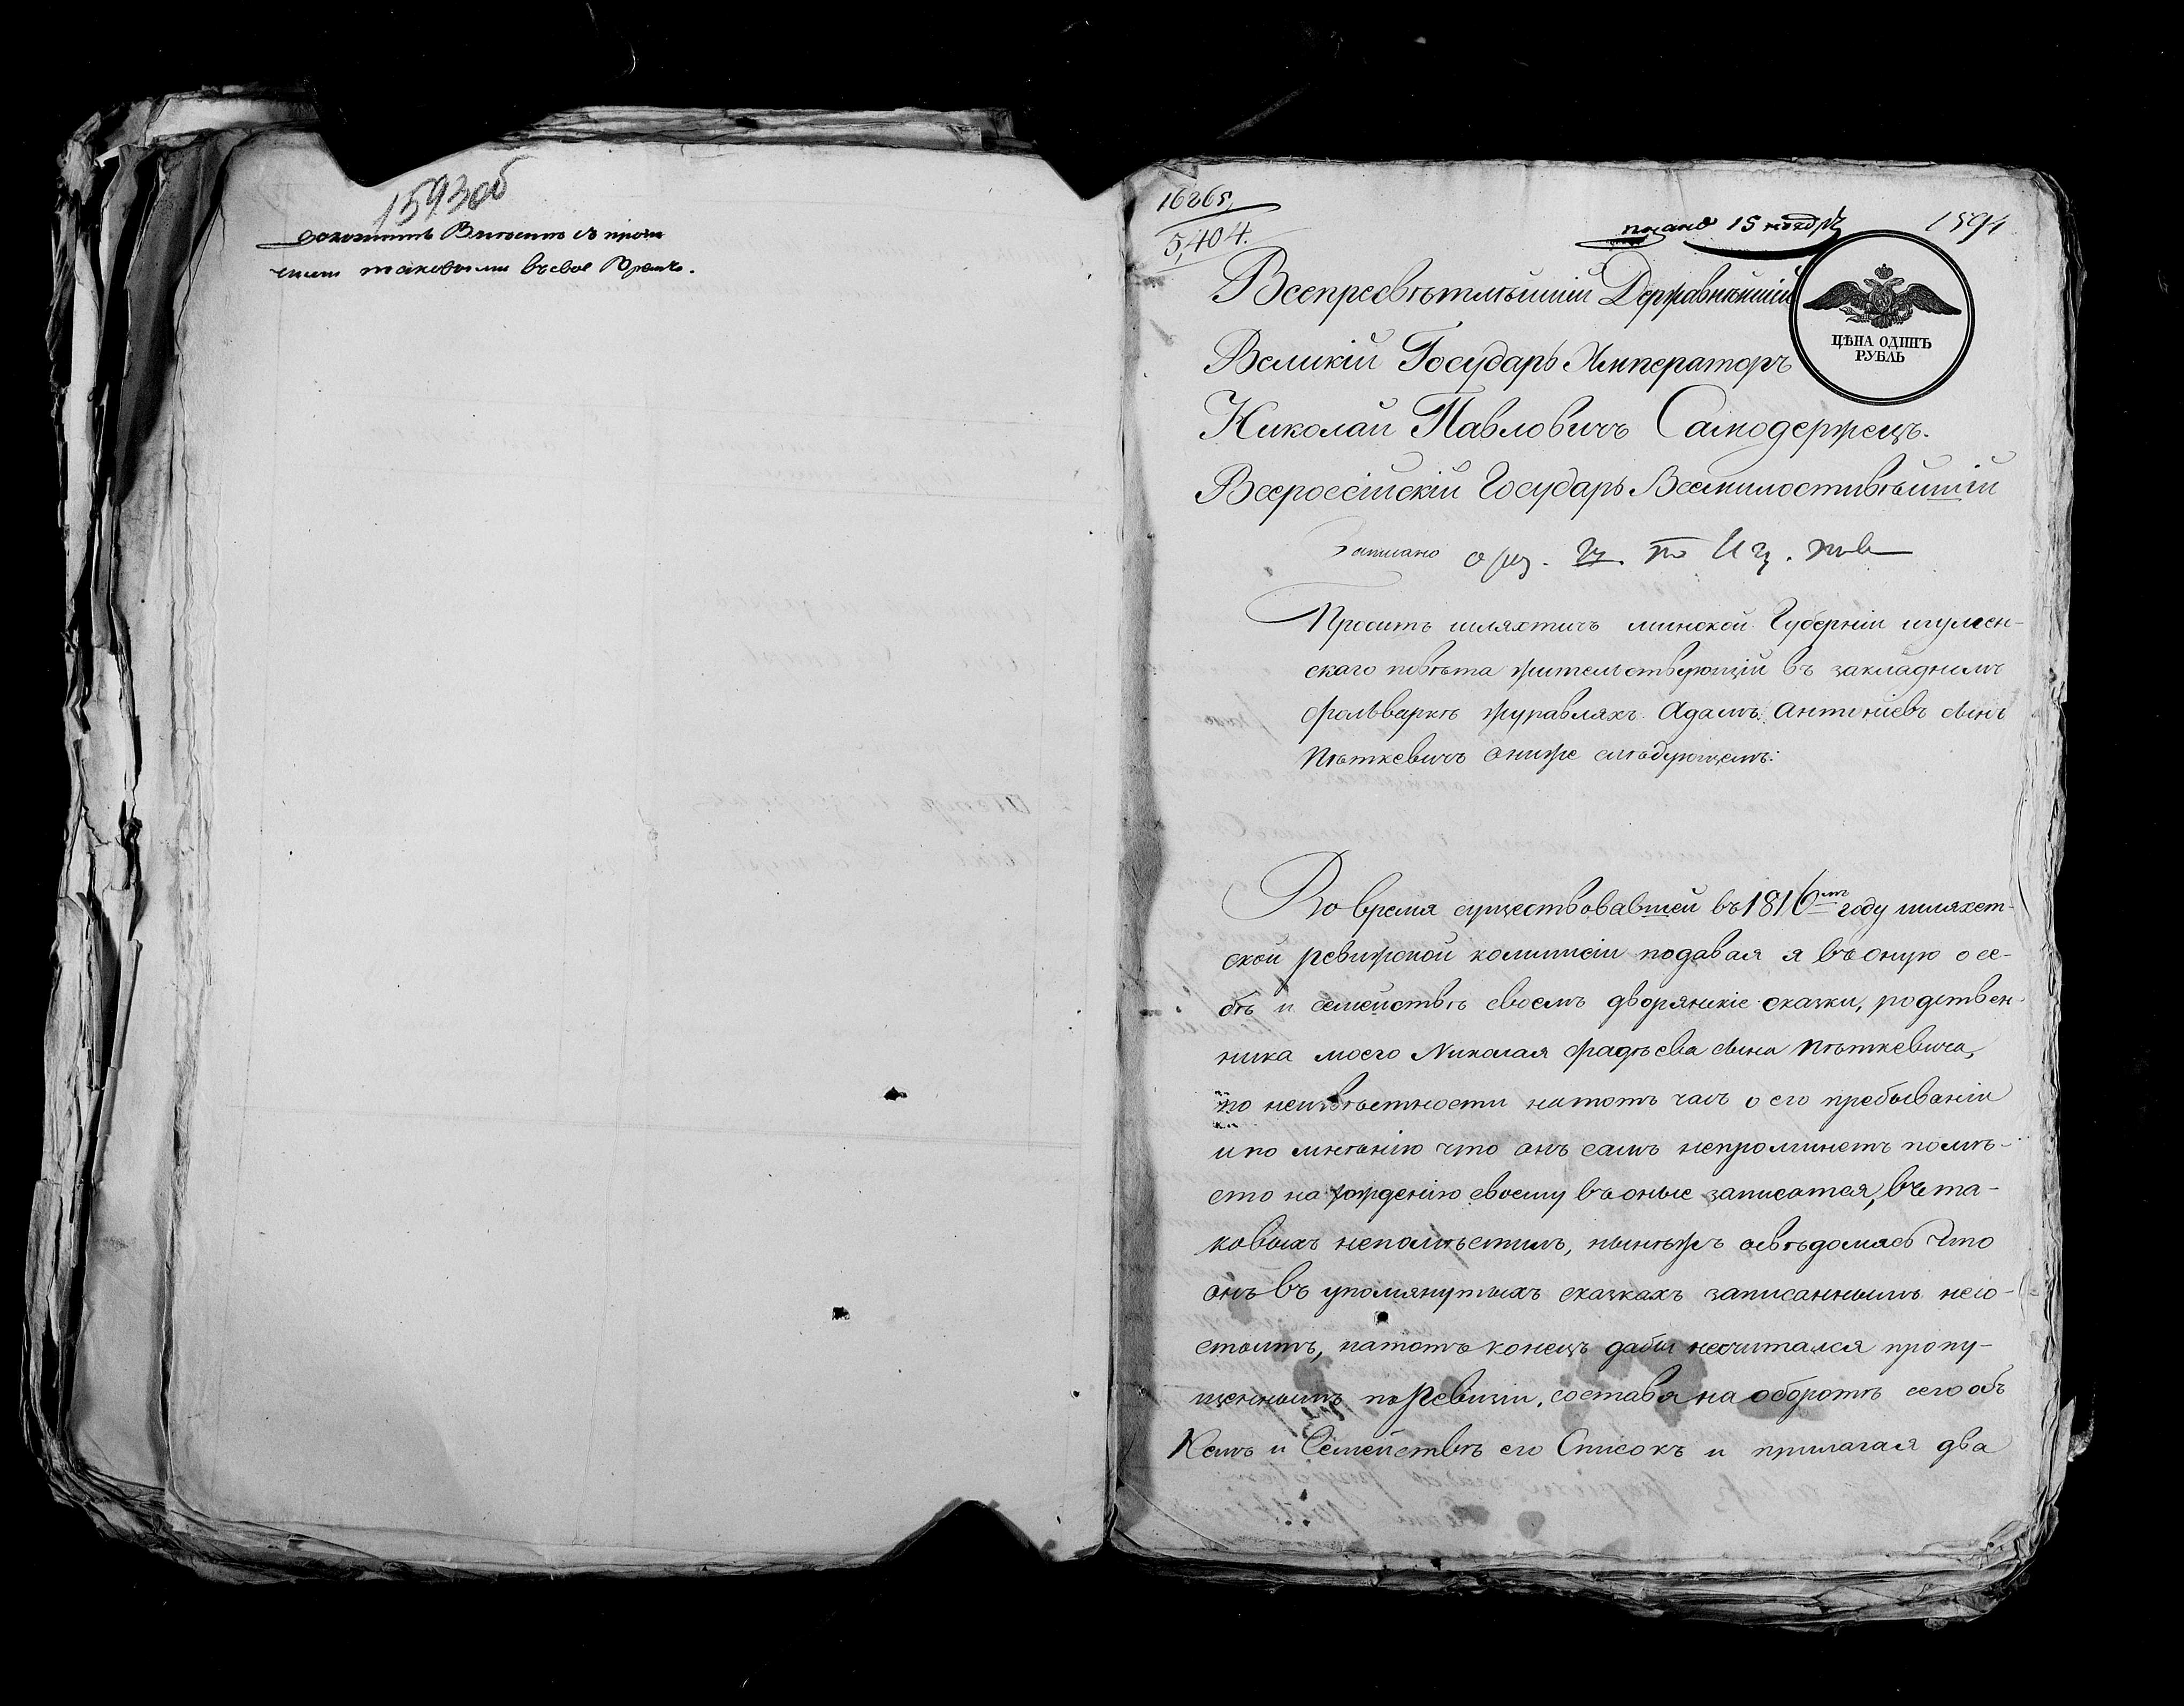 1593об
доложить Вместе съ прочи
ими таковыми въ свое Время.
16265
5,404.
15 ноября
1594
ЦѢНА ОДИНЪ
РУБЛЬ
Всепресвѣтлѣйшій Державнѣйшій
Великій Государь Императоръ
Николай Павловичъ Самодержецъ.
Всероссійскій Государь Всемилостивѣйшій
Записано
Проситъ шляхтичъ минской Губерніи игумен-
скаго повѣта жительствующій въ закладномъ
фольваркѣ журавляхъ Адамъ Антоніевъ сынъ
Пѣткевичъ а ниже слѣдующемъ:
Во время существовавшей въ 1816мъ году шляхет-
ской ревизкой коммисіи подавая я въ оную о се-
бѣ и семействѣ своемъ дворянскіе сказки, родствен-
ника моего Николая Фадѣева сына Пѣткевича,
по неизвѣстности на тотъ часъ о его пребываніи
и по мнѣнію что онъ самъ непроминетъ помѣ-
сто на рожденію своему въ оные записатся, въ та-
ковыхъ непомѣстилъ, нынѣжъ освѣдомясь что
онъ въ упомянутыхъ сказкахъ записаннымъ несо-
стоитъ, на тотъ конецъ дабы несчитался пропу-
щеннымъ по Ревизіи, составя на оборотѣ сего объ
Немъ и Семействѣ его Списокъ и прилагая два